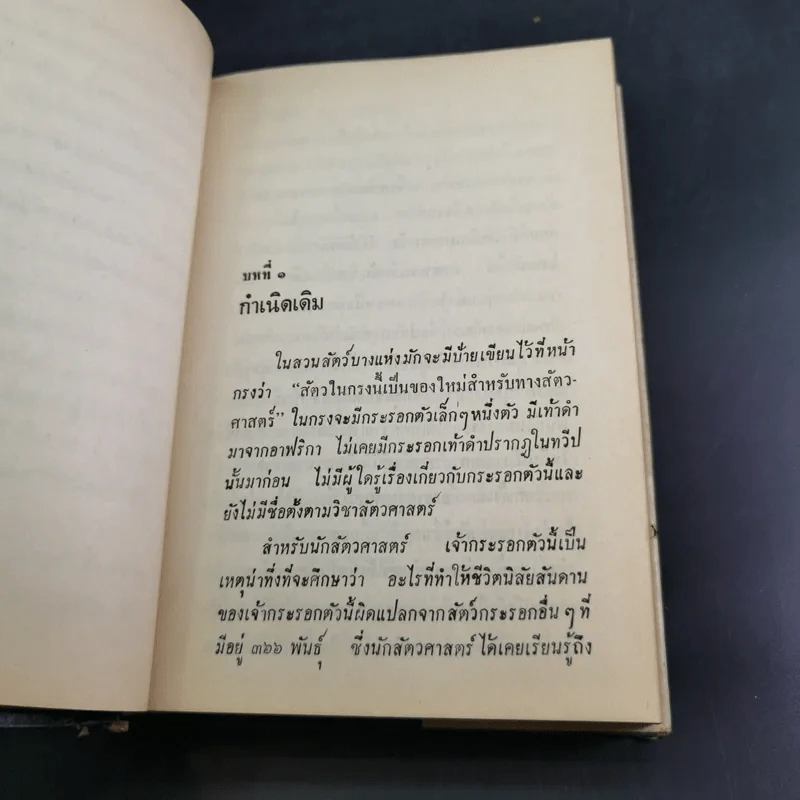 บทที่ ๑
กำเนิดเดิม
ในสวนสัตว์บางแห่งมักจะมีป้ายเขียนไว้ที่หน้า
กรงว่า “สัตว์ในกรงนี้เป็นของใหม่สำหรับทางสัตว-
ศาสตร์” ในกรงจะมีกระรอกตัวเล็กๆหนึ่งตัว มีเท้าดำ
มาจากอาฟริกา ไม่เคยมีกระรอกเท้าดำปรากฏในทวีป
นั้นมาก่อน ไม่มีผู้ใดรู้เรื่องเกี่ยวกับกระรอกตัวนี้และ
ยังไม่มีชื่อตั้งตามวิชาสัตวศาสตร์
สำหรับนักสัตวศาสตร์ เจ้ากระรอกตัวนี้เป็น
เหตุน่าทึ่งที่จะศึกษาว่า อะไรที่ทำให้ชีวิตนิสัยสันดาน
ของเจ้ากระรอกตัวนี้ผิดแปลกจากสัตว์กระรอกอื่น ๆ ที่
มีอยู่ ๓๖๖ พันธุ์ ซึ่งนักสัตวศาสตร์ ได้เคยเรียนรู้ถึง